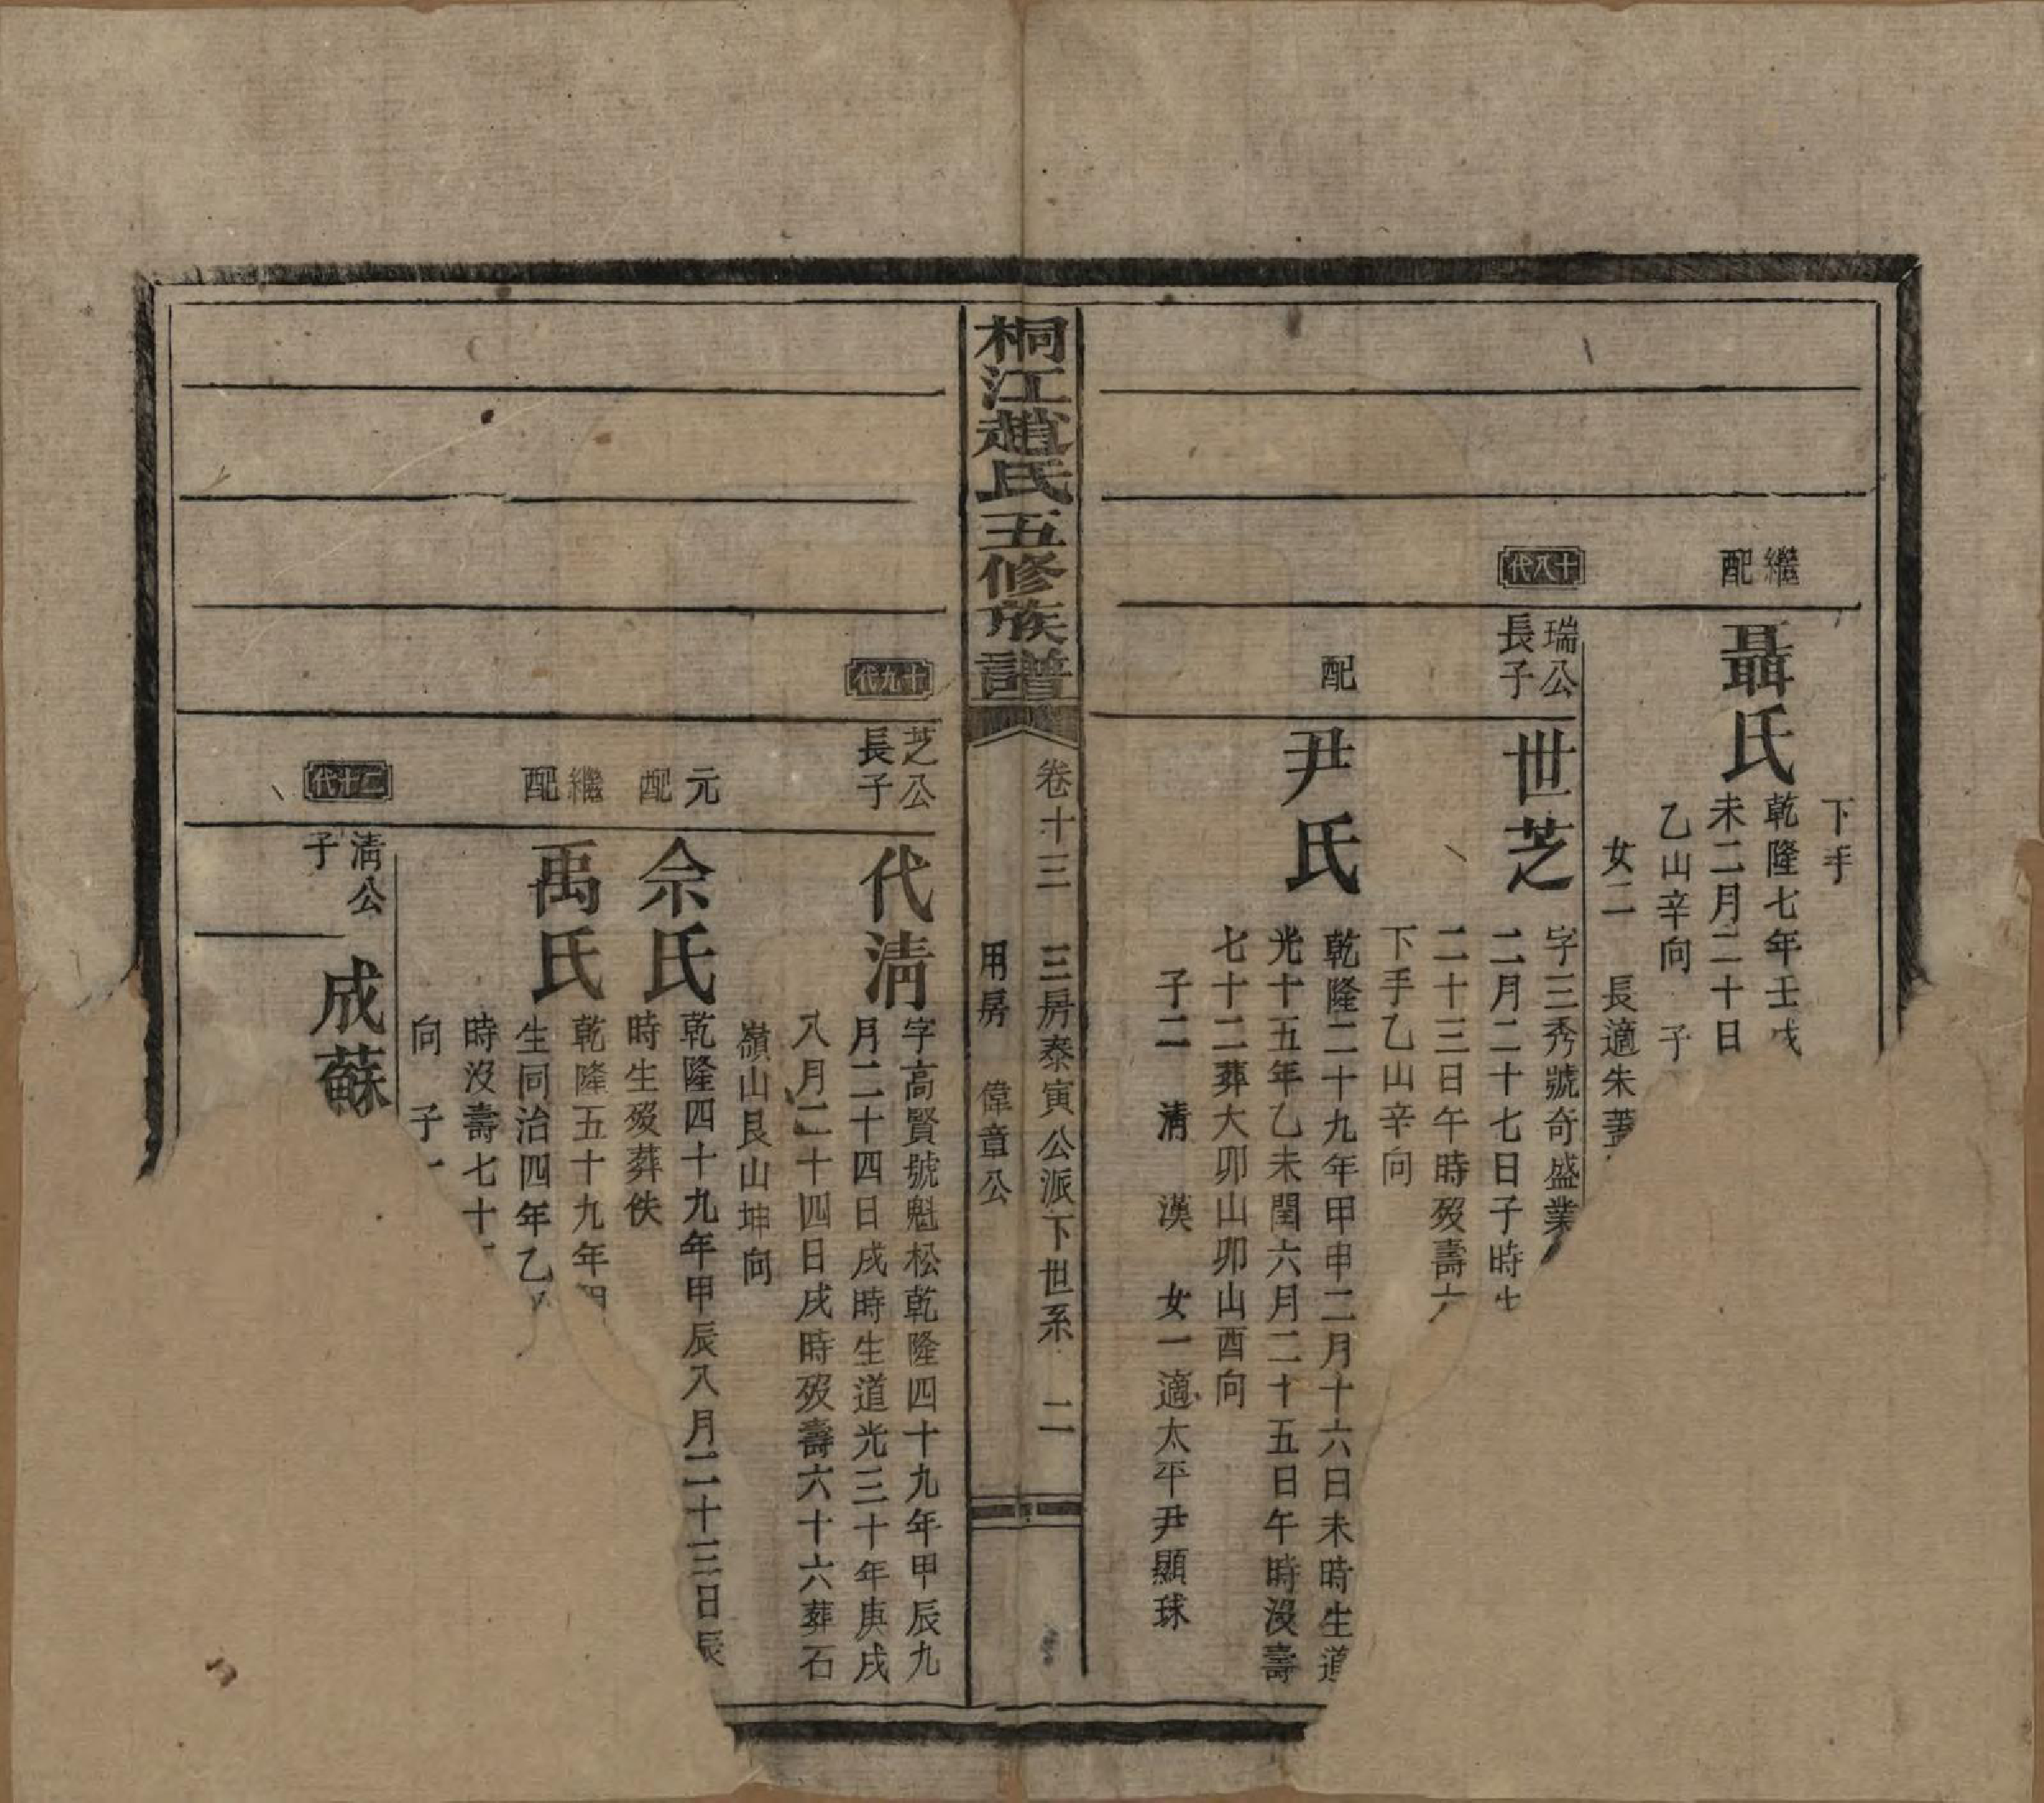 下手
繼配
聶氏
乾隆七年壬戌
未二月二十日
乙山辛向 子
女二 長適朱蓋
十八代
瑞公長子
世芝
字三秀號奇盛業
二月二十七日子時生
二十三日午時歿壽六
下手乙山辛向
配
尹氏
乾隆二十九年甲申二月十六日未時生道
光十五年乙未閏六月二十五日午時沒壽
七十二葬大卯山卯山酉向
子二 清 漢 女一適太平尹顯球
桐江趙氏五修族譜
卷十三 三房泰寅公派下世系 二
用房 偉章公
十九代
芝公長子
代清
字高賢號魁松乾隆四十九年甲辰九
月二十四日戌時生道光三十年庚戌
八月二十四日戌時歿壽六十六葬石
嶺山艮山坤向
元配
佘氏
乾隆四十九年甲辰八月二十三日辰
時生歿葬佚
繼配
禹氏
乾隆五十九年甲
生同治四年乙
時沒壽七十
向 子一
二十代
清公子
成蘇